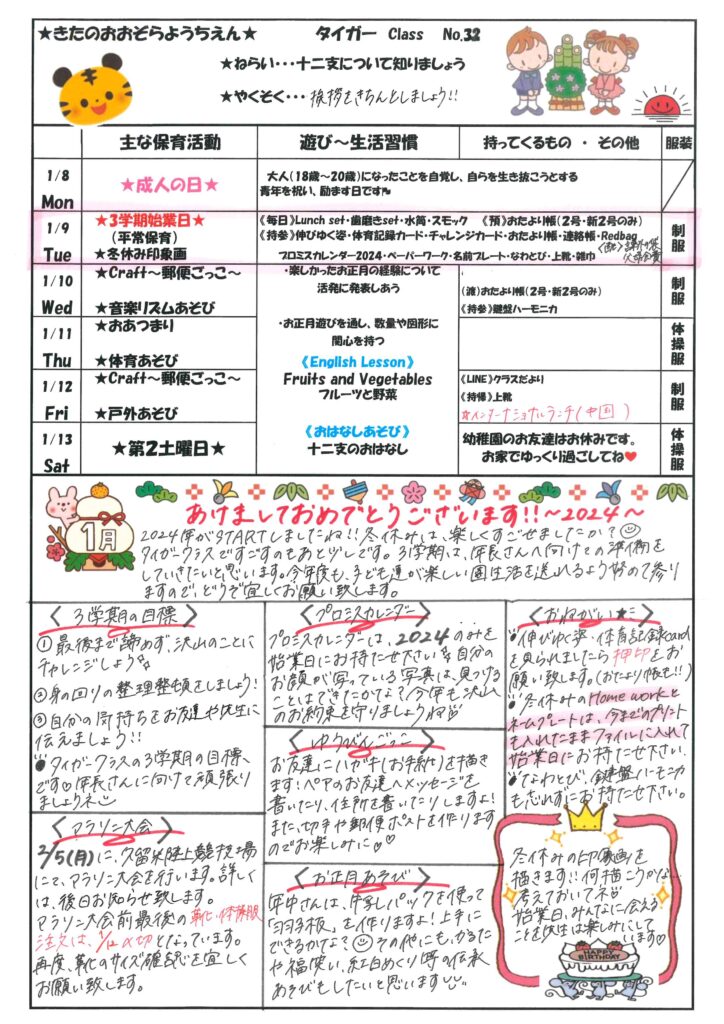 ★きたのおおぞらようちえん★ タイガー Class No.32
★ねらい・・・十二支について知りましょう
★やくそく・・・挨拶をきちんとしましょう!!
主な保育活動 遊び～生活習慣 持ってくるもの ・ その他 服装
1/8 Mon
★成人の日★
大人(18歳～20歳)になったことを自覚し、自らを生き抜こうとする
青年を祝い、励ます日です
1/9 Tue
★3学期始業日★
(平常保育)
★冬休み印象画
《毎日》Lunch set・歯磨きset・水筒・スモック 《預》おたより帳(2号・新2号のみ)
《持参》伸びゆく姿・体育記録カード・チャレンジカード・おたより帳・連絡帳・Redbag
プロミスカレンダー2024・ペーパーワーク・名前プレート・なわとび・上靴・雑巾
制服
1/10 Wed
★Craft～郵便ごっこ～
★音楽リズムあそび
・楽しかったお正月の経験について
活発に発表しあう
(渡)おたより帳(2号・新2号のみ)
《持参》鍵盤ハーモニカ
制服
1/11 Thu
★おあつまり
★体育あそび
・お正月遊びを通し、数量や図形に
関心を持つ
《English Lesson》
体操服
1/12 Fri
★Craft～郵便ごっこ～
★戸外あそび
Fruits and Vegetables
フルーツと野菜
《LINE》クラスだより
《持帰》上靴
☆インターナショナルランチ(中国)
制服
1/13 Sat
★第2土曜日★
《おはなしあそび》
十二支のおはなし
幼稚園のお友達はお休みです。
お家でゆっくり過ごしてね♥
体操服
1月
あけましておめでとうございます!!～2024～
2024年がSTARTしましたね!!冬休みは、楽しくすごせましたか?
タイガークラスですごすのもあと少しです。3学期は、年長さんへ向けての準備を
していきたいと思います。今年度も、子ども達が楽しい園生活を送れるよう努めて参り
ますので、どうぞ宜しくお願い致します。
〈3学期の目標〉
①最後まで諦めず、沢山のことに
チャレンジしよう
②身の回りの整理整頓をしましょう!
③自分の気持ちをお友達や先生に
伝えましょう!!
●タイガークラスの3学期の目標
です♡年長さんに向けて頑張り
ましょうネ
〈マラソン大会〉
2/5(月)に、久留米陸上競技場
にて、マラソン大会を行います。詳しく
は、後日お知らせ致します。
マラソン大会前最後の靴・体操服
注文は、1/12〆切となっています。
再度、靴のサイズ確認を宜しく
お願い致します。
〈プロミスカレンダー〉
プロミスカレンダーは、2024のみを
始業日にお持たせ下さい 自分の
お顔が写っている写真は、見つける
ことはできたかな?今年も沢山
のお約束を守りましょうね♡
〈ゆうびんごっこ〉
お友達にハガキ(お手紙)を書きます
ます!ペアのお友達へメッセージを
書いたり、住所を書いたりしますよ!
また、切手や郵便ポストを作ります
のでお楽しみに♡♥
〈お正月あそび〉
年中さんは、牛乳パックを使って
「羽子板」を作りますよ!上手に
できるかな?その他にも、かるた
や福笑い、紅白めくり等の伝承
あそびもしたいと思います
〈おねがい★〉
●伸びゆく姿・体育記録card
を見られましたら押印をお
願い致します。(おたより帳も!!)
●冬休みのHome workと
ネームプレートは、今までのプリント
も入れたままファイルに入れて
始業日にお持たせ下さい。
●なわとび、鍵盤ハーモニカ
も忘れずにお持たせ下さい。
冬休みの印象画を
描きます!!何描こうかな…
考えておいてネ♡
始業日、みんなに会える
ことを先生は楽しみにして
います♡
HAPPY BIRTHDAY